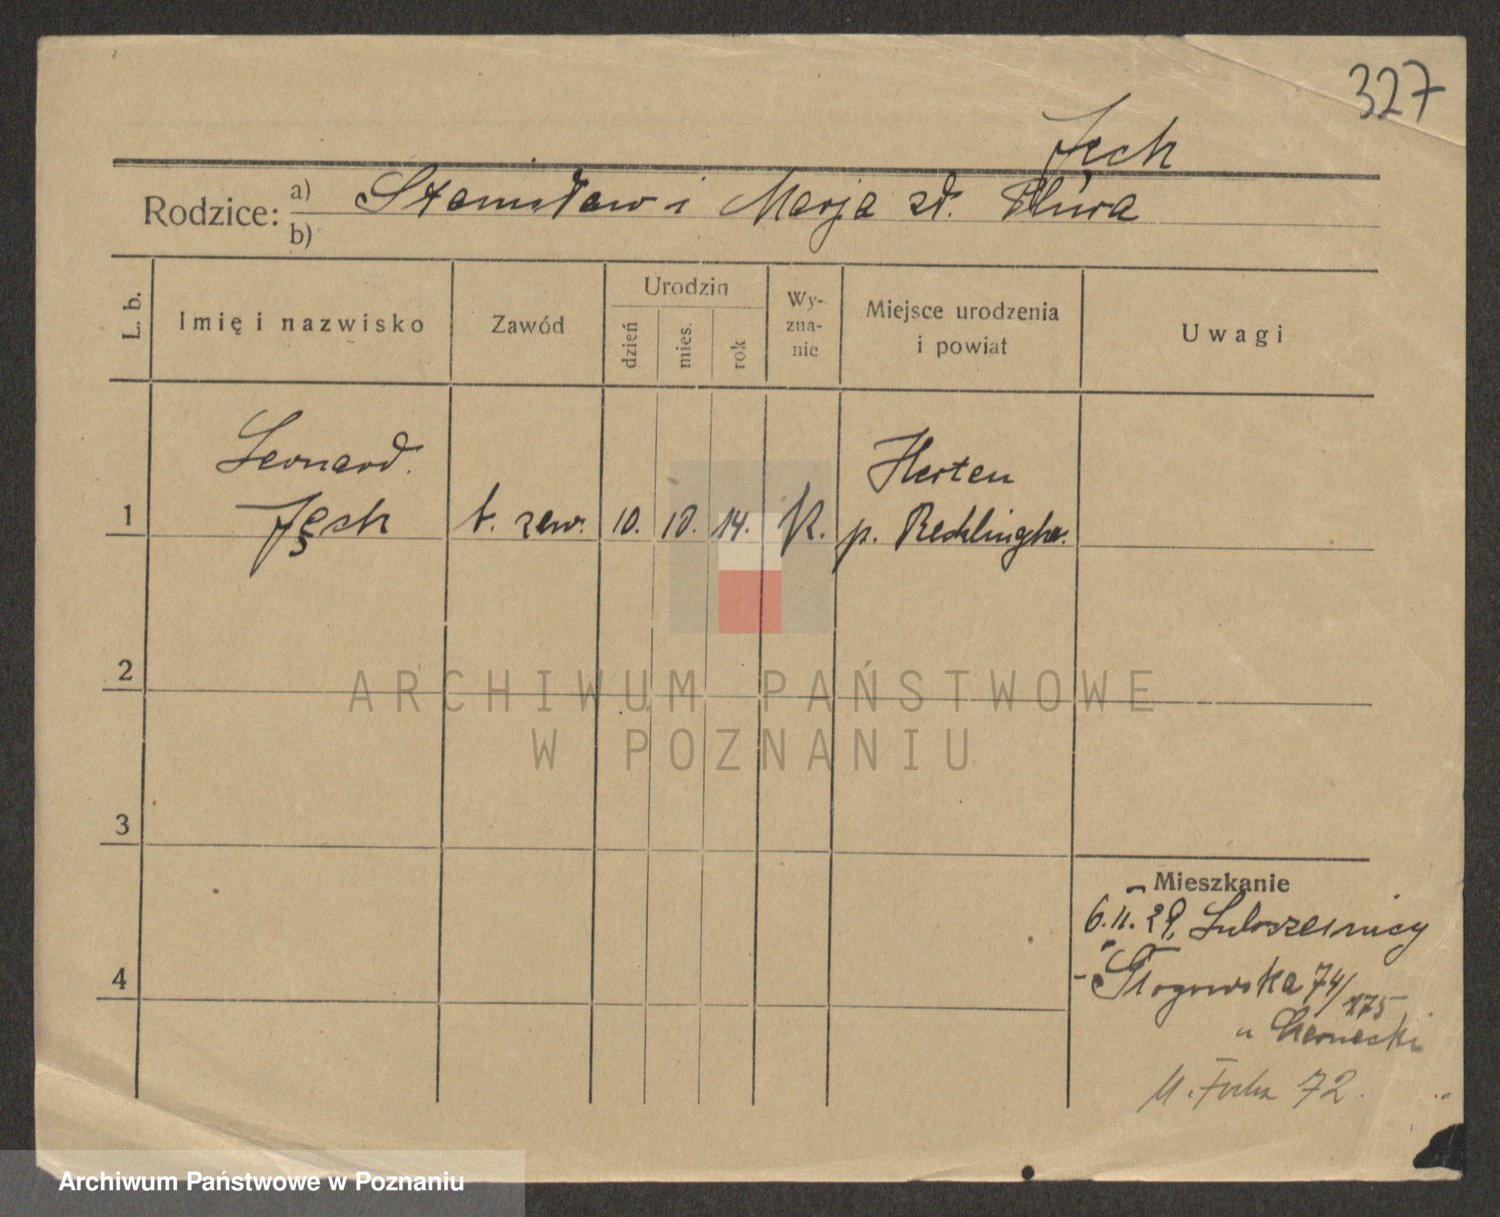 327
Jęch
Rodzice: a) Stanisław i Marja zd.
b)
L. b.
Imię i nazwisko
Zawód
Urodzin
dzień
mies.
rok
Wy-
zna-
nie
Miejsce urodzenia
i powiat
Uwagi
Leonard
1 Jęch t. zew. 10. 10. 14. K. Herten
p. Recklingha.
2
3
4
Mieszkanie
6.11.29,
Głogowska 74/
175
u Czarnecki
M. Focha 72.
ARCHIWUM PAŃSTWOWE
W POZNANIU
Archiwum Państwowe w Poznaniu